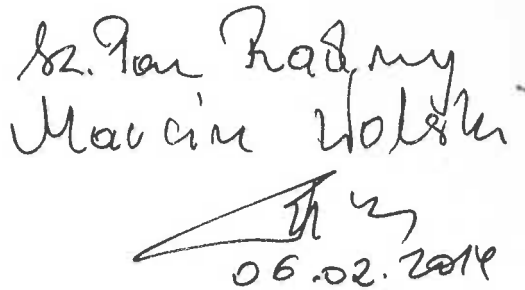 Sz. Pan Radny
Marcin Wolski
06.02.2014